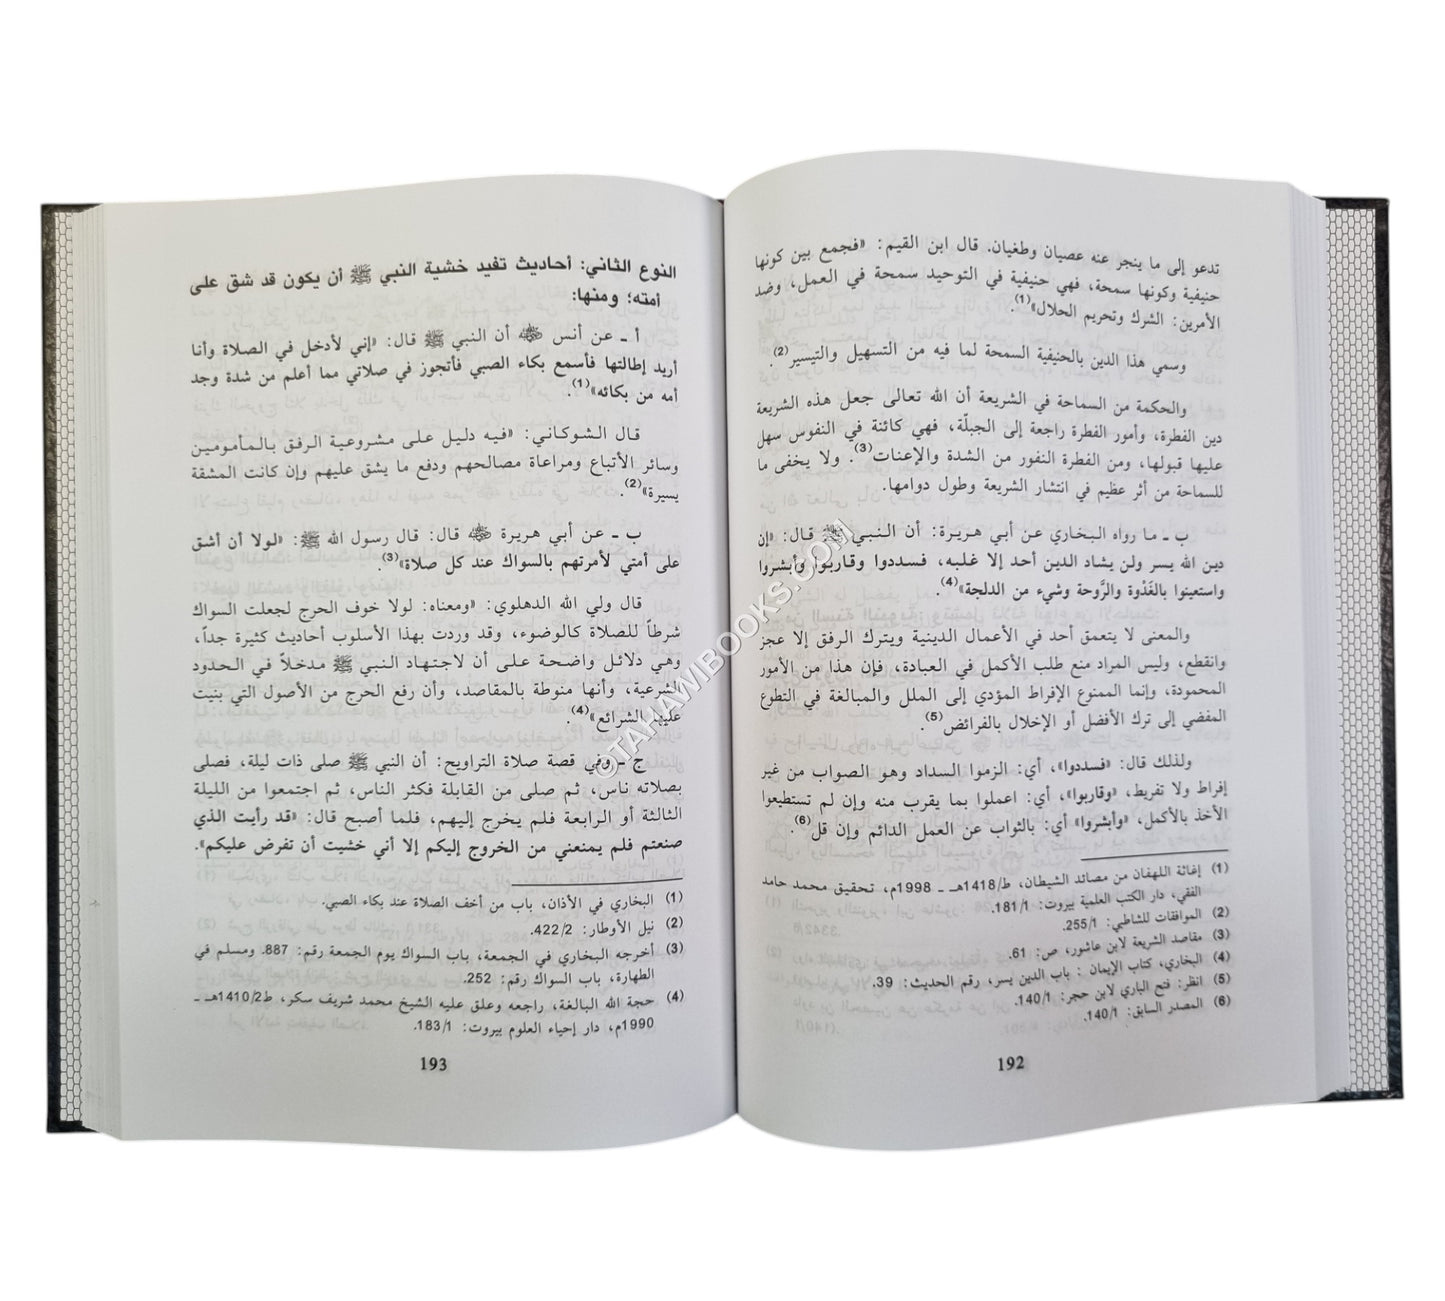 تدعو إلى ما ينجر عنه عصيان وطغيان. قال ابن القيم: «فجمع بين كونها
حنيفية وكونها سمحة، فهي حنيفية في التوحيد سمحة في العمل، وضد
الأمرين: الشرك وتحريم الحلال»(1).
وسمي هذا الدين بالحنيفية السمحة لما فيه من التسهيل والتيسير(2).
والحكمة من السماحة في الشريعة أن الله تعالى جعل هذه الشريعة
دين الفطرة، وأمور الفطرة راجعة إلى الجبلّة، فهي كائنة في النفوس سهل
عليها قبولها، ومن الفطرة النفور من الشدة والإعنات(3). ولا يخفى ما
للسماحة من أثر عظيم في انتشار الشريعة وطول دوامها.
ب ـ ما رواه البخاري عن أبي هريرة: أن النبي ﷺ قال: «إن
دين الله يسر ولن يشاد الدين أحد إلا غلبه، فسددوا وقاربوا وأبشروا
واستعينوا بالغَدْوة والرَّوحة وشيء من الدلجة»(4).
والمعنى لا يتعمق أحد في الأعمال الدينية ويترك الرفق إلا عجز
وانقطع، وليس المراد منع طلب الأكمل في العبادة، فإن هذا من الأمور
المحمودة، وإنما الممنوع الإفراط المؤدي إلى الملل والمبالغة في التطوع
المفضي إلى ترك الأفضل أو الإخلال بالفرائض(5).
ولذلك قال: «فسددوا»، أي: الزموا السداد وهو الصواب من غير
إفراط ولا تفريط، «وقاربوا»، أي: اعملوا بما يقرب منه وإن لم تستطيعوا
الأخذ بالأكمل، «وأبشروا» أي: بالثواب عن العمل الدائم وإن قل(6).
(1) إغاثة اللهفان من مصائد الشيطان، ط/1418هـ ـ 1998م، تحقيق محمد حامد
الفقي، دار الكتب العلمية بيروت: 181/1.
(2) الموافقات للشاطبي: 255/1.
(3) مقاصد الشريعة لابن عاشور، ص: 61.
(4) البخاري، كتاب الإيمان : باب الدين يسر، رقم الحديث: 39.
(5) انظر: فتح الباري لابن حجر: 140/1.
(6) المصدر السابق: 140/1.
192
النوع الثاني: أحاديث تفيد خشية النبي ﷺ أن يكون قد شق على
أمته؛ ومنها:
أ ـ عن أنس رضي الله عنه أن النبي ﷺ قال: «إني لأدخل في الصلاة وأنا
أريد إطالتها فأسمع بكاء الصبي فأتجوز في صلاتي مما أعلم من شدة وجد
أمه من بكائه»(1).
قال الشوكاني: «فيه دليل على مشروعية الرفق بالمأمومين
وسائر الأتباع ومراعاة مصالحهم ودفع ما يشق عليهم وإن كانت المشقة
يسيرة»(2).
ب ـ عن أبي هريرة رضي الله عنه قال: قال رسول الله ﷺ: «لولا أن أشق
على أمتي لأمرتهم بالسواك عند كل صلاة»(3).
قال ولي الله الدهلوي: «ومعناه: لولا خوف الحرج لجعلت السواك
شرطاً للصلاة كالوضوء، وقد وردت بهذا الأسلوب أحاديث كثيرة جداً،
وهي دلائل واضحة على أن لاجتهاد النبي ﷺ مدخلاً في الحدود
الشرعية، وأنها منوطة بالمقاصد، وأن رفع الحرج من الأصول التي بنيت
عليها الشرائع»(4).
ج ـ وفي قصة صلاة التراويح: أن النبي ﷺ صلى ذات ليلة، فصلى
بصلاته ناس، ثم صلى من القابلة فكثر الناس، ثم اجتمعوا من الليلة
الثالثة أو الرابعة فلم يخرج إليهم، فلما أصبح قال: «قد رأيت الذي
صنعتم فلم يمنعني من الخروج إليكم إلا أني خشيت أن تفرض عليكم».
(1) البخاري في الأذان، باب من أخف الصلاة عند بكاء الصبي.
(2) نيل الأوطار: 422/2.
(3) أخرجه البخاري في الجمعة، باب السواك يوم الجمعة رقم: 887. ومسلم في
الطهارة، باب السواك رقم: 252.
(4) حجة الله البالغة، راجعه وعلق عليه الشيخ محمد شريف سكر، ط/2/1410هـ ـ
1990م، دار إحياء العلوم بيروت: 183/1.
193
©TAHAWIBOOKS.COM